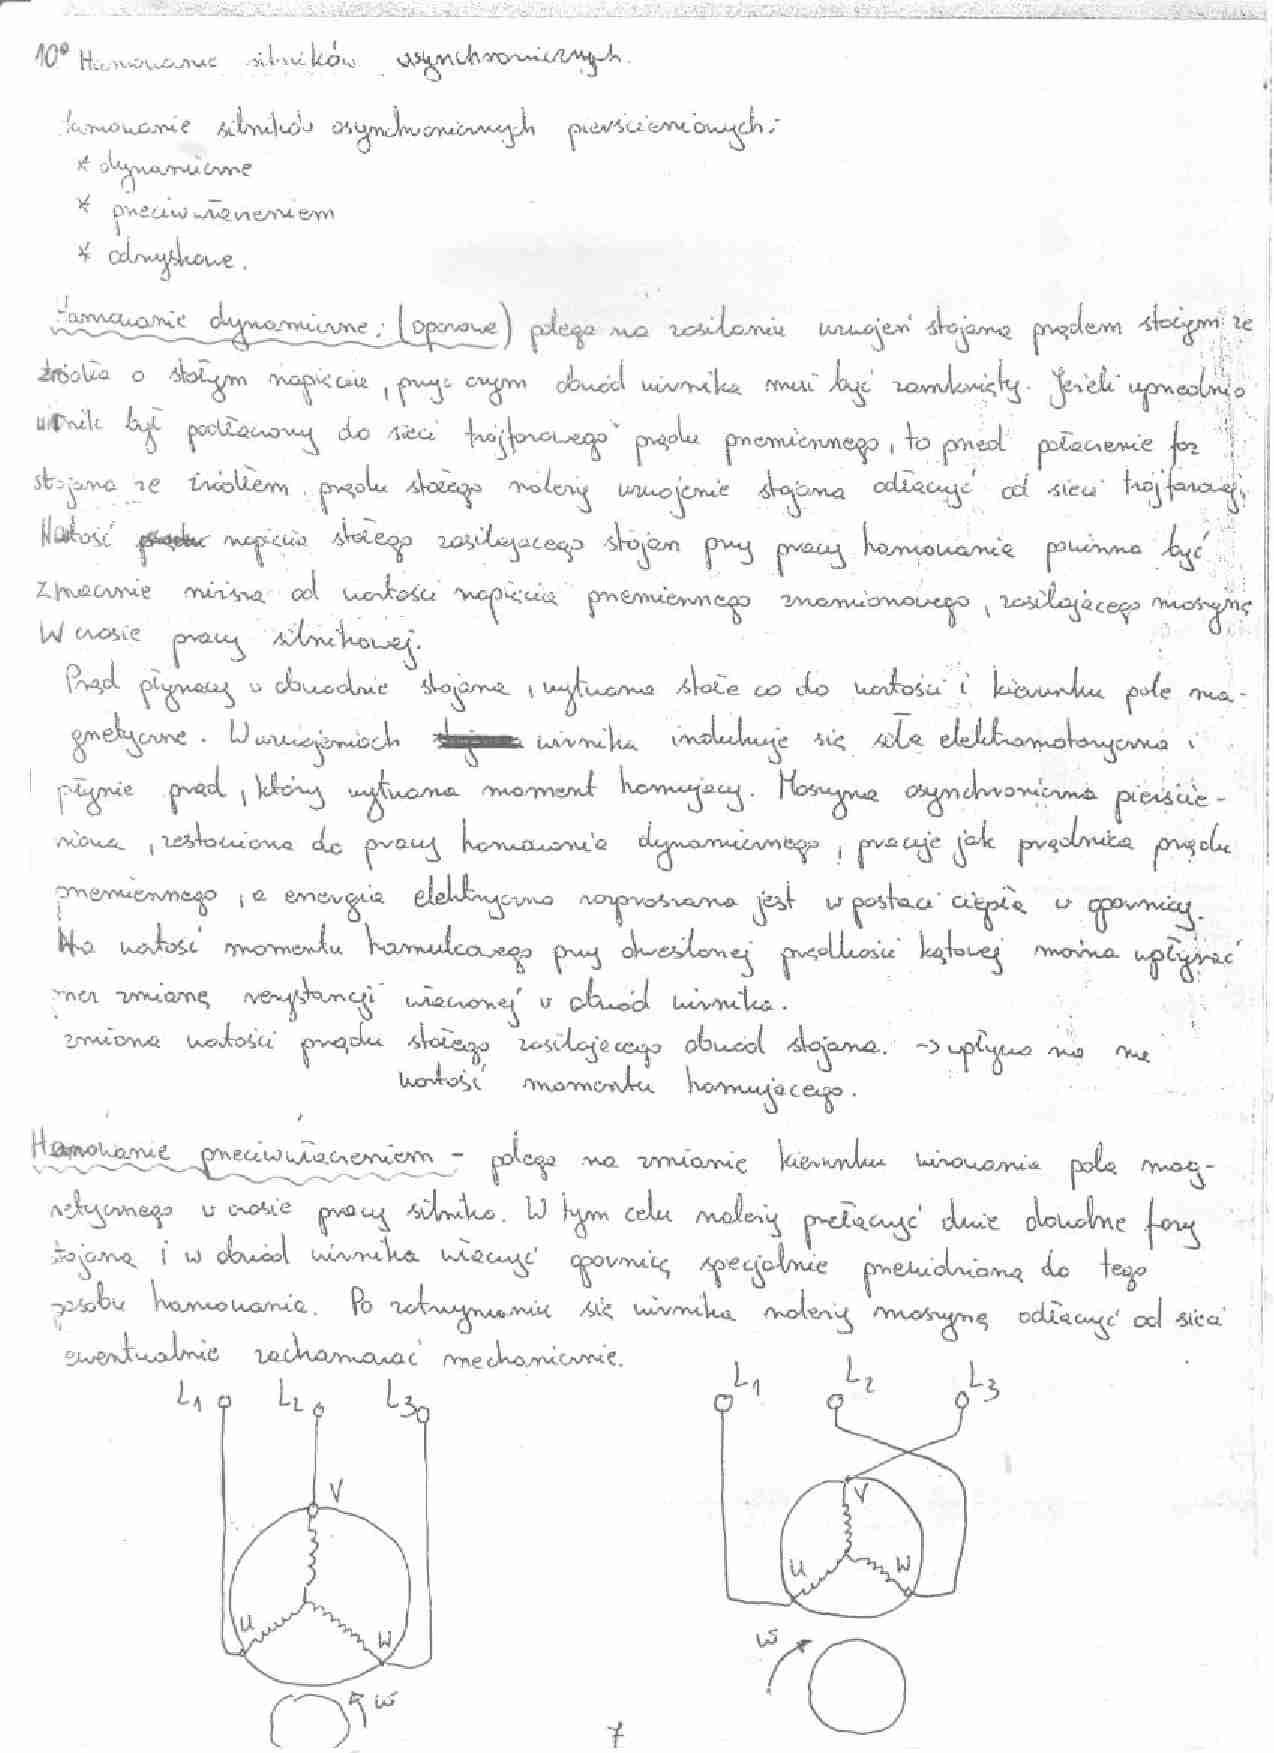 10° Hamowanie silników asynchronicznych.
Hamowanie silników asynchronicznych pierścieniowych:
* dynamiczne
* przeciwwłączeniem
* odzyskowe.
Hamowanie dynamiczne: (oporowe) polega na zasilaniu uzwojeń stojana prądem stałym ze
źródła o stałym napięciu, przy czym obwód wirnika musi być zamknięty. Jeżeli uprzednio
silnik był podłączony do sieci trójfazowego prądu przemiennego, to przed połączenie faz
stojana ze źródłem prądu stałego należy uzwojenie stojana odłączyć od sieci trójfazowej,
Wartość napięcia stałego zasilającego stojan przy pracy hamowania powinna być
znacznie niższa od wartości napięcia przemiennego znamionowego, zasilającego maszynę
W czasie pracy silnikowej.
Prąd płynący w obwodzie stojana, wytwarza stałe co do wartości i kierunku pole ma-
gnetyczne. W uzwojeniach wirnika indukuje się siła elektromotoryczna i
płynie prąd, który wytwarza moment hamujący. Maszyna asynchroniczna pierście-
niowa, zestawiona do pracy hamowania dynamicznego, pracuje jak prądnica prądu
przemiennego, a energia elektryczna rozpraszana jest w postaci ciepła w opornicy.
Na wartość momentu hamulcowego przy określonej prędkości kątowej można wpływać
przez zmianę rezystancji włączonej w obwód wirnika.
zmiana wartości prądu stałego zasilającego obwód stojana. -> wpływa na
wartość momentu hamującego.
Hamowanie przeciwwłączeniem - polega na zmianie kierunku wirowania pola mag-
netycznego w czasie pracy silnika. W tym celu należy przełączyć dwie dowolne fazy
stojana i w obwód wirnika włączyć opornicę specjalnie przewidzianą do tego
sposobu hamowania. Po zatrzymaniu się wirnika należy maszynę odłączyć od sieci
ewentualnie zahamować mechanicznie.
L1 L2 L3 L1 L2 L3
V V
U W U W
ω ω
7